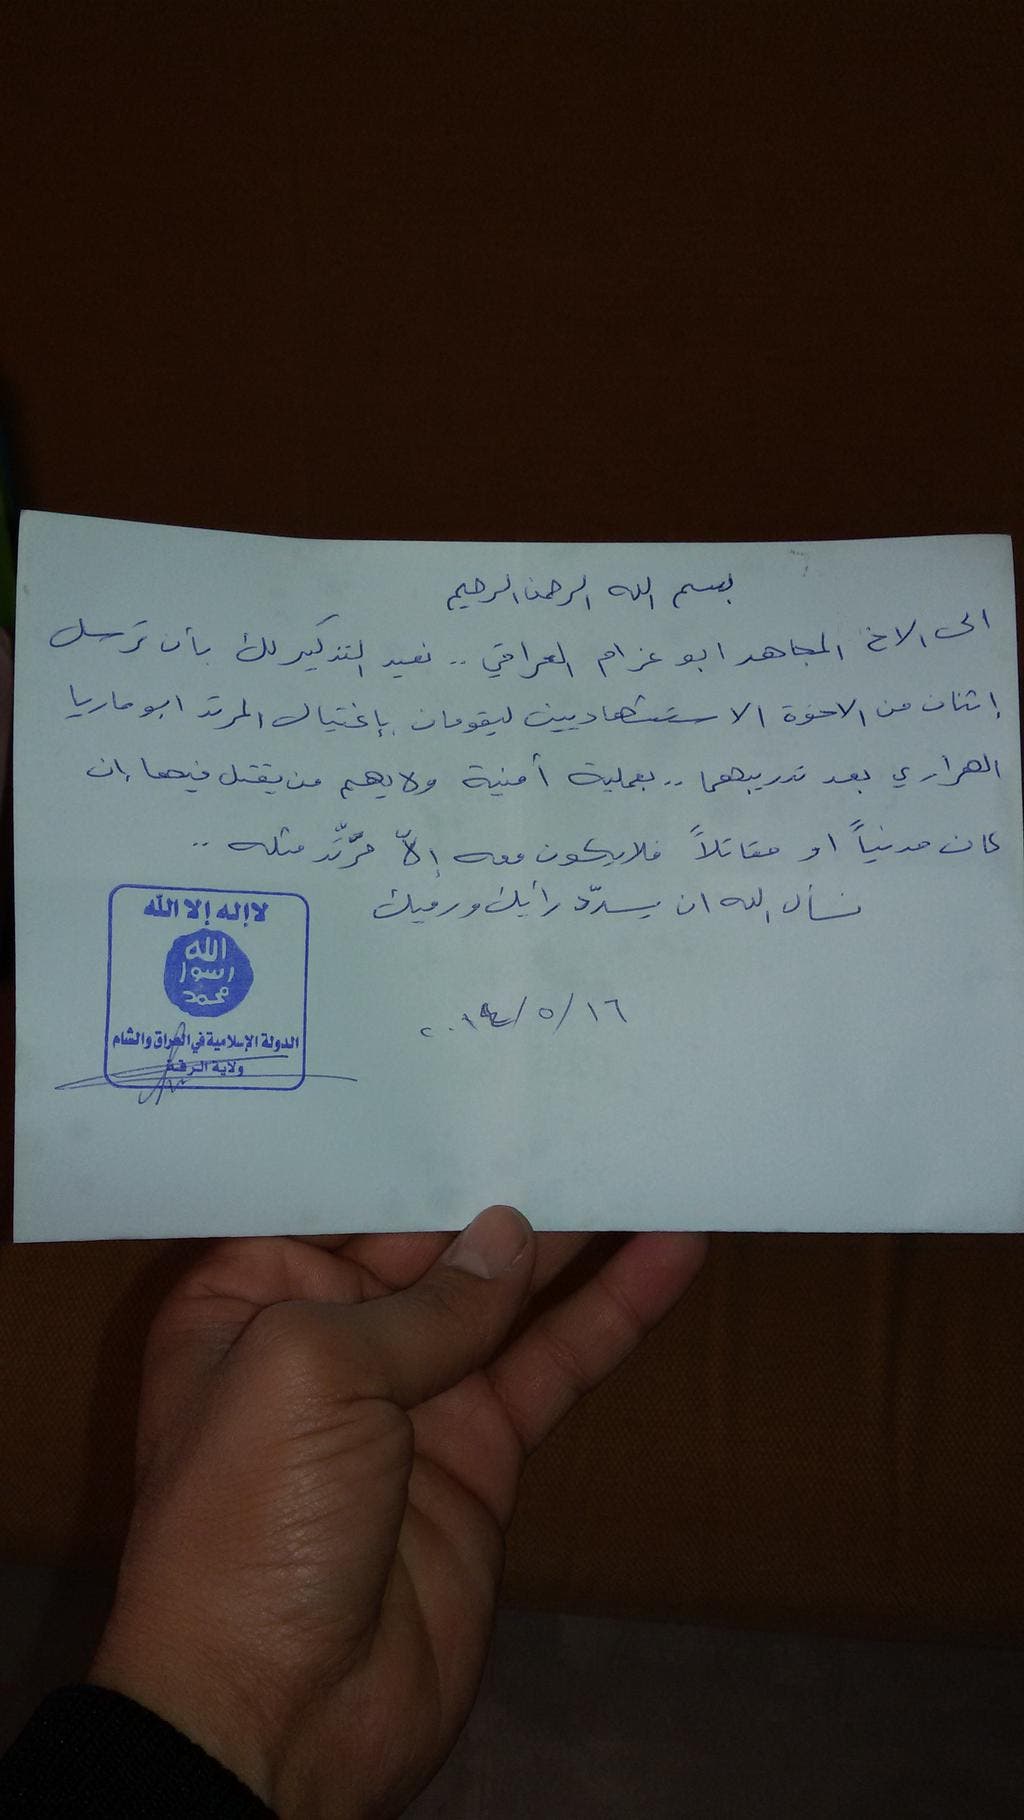 بسم الله الرحمن الرحيم
الى الاخ المجاهد ابو عزام العراقي .. نعيد التذكير لك بأن ترسل
إثنان من الاخوة الاستشهاديين ليقومان بإغتيال المرتد ابو ماريا
الهراري بعد تدريبهما .. بعملية أمنية ولا يهم من يقتل فيها إن
كان مدنياً او مقاتلاً فلا يكون معه إلّا مرّتَّد مثله ..
نسأل الله ان يسدّد رأيك ورميك
٢٠١٤/٥/١٦
لا إله إلا الله
الله
رسول
محمد
الدولة الإسلامية في العراق والشام
ولاية الرقة